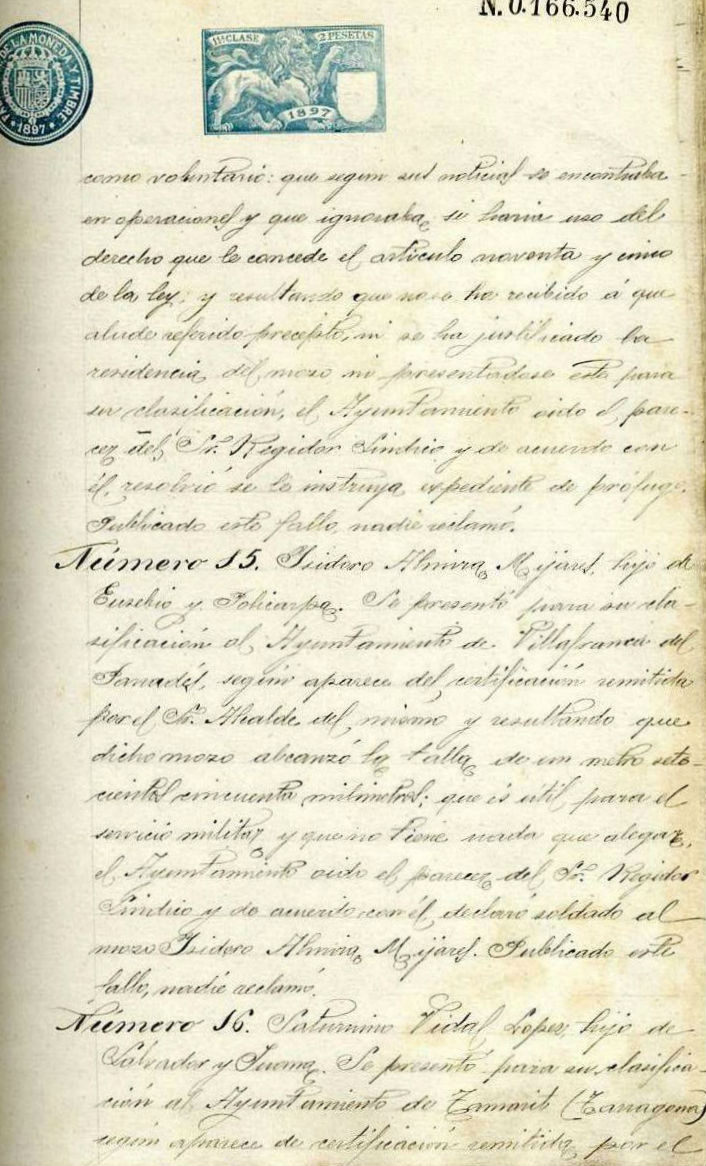 N. 0.166.540
11ª CLASE 2 PESETAS
1897
DE LA MONEDA Y TIMBRE
1897
como voluntario: que segun sus noticias se encontraba
en operaciones y que ignoraba si haria uso del
derecho que le concede el articulo noventa y cinco
de la ley; y resultando que no se ha recibido á que
alude referido precepto, ni se ha justificado la
residencia del mozo ni presentadose este para
su clasificación, el Ayuntamiento oido el pare-
cer del Sr. Regidor Sindico y de acuerdo con
él, resolvió se le instruya expediente de prófugo.
Publicado este fallo, nadie reclamó.
Número 15. Isidoro Almira Mijares, hijo de
Eusebio y Policarpa. Se presentó para su cla-
sificación al Ayuntamiento de Villafranca del
Panadés, según aparece del certificación remitida
por el Sr. Alcalde del mismo y resultando que
dicho mozo alcanzó la talla de un metro sete-
cientos cincuenta milimetros; que es util para el
servicio militar y que no tiene nada que alegar,
el Ayuntamiento oido el parecer del Sr. Regidor
Sindico y de acuerdo con él, declaró soldado al
mozo Isidoro Almira Mijares. Publicado este
fallo, nadie reclamó.
Número 16. Saturnino Vidal Lopez, hijo de
Salvador y Juana. Se presentó para su clasifica-
ción al Ayuntamiento de Tamarit (Tarragona)
según aparece de certificación remitida por el